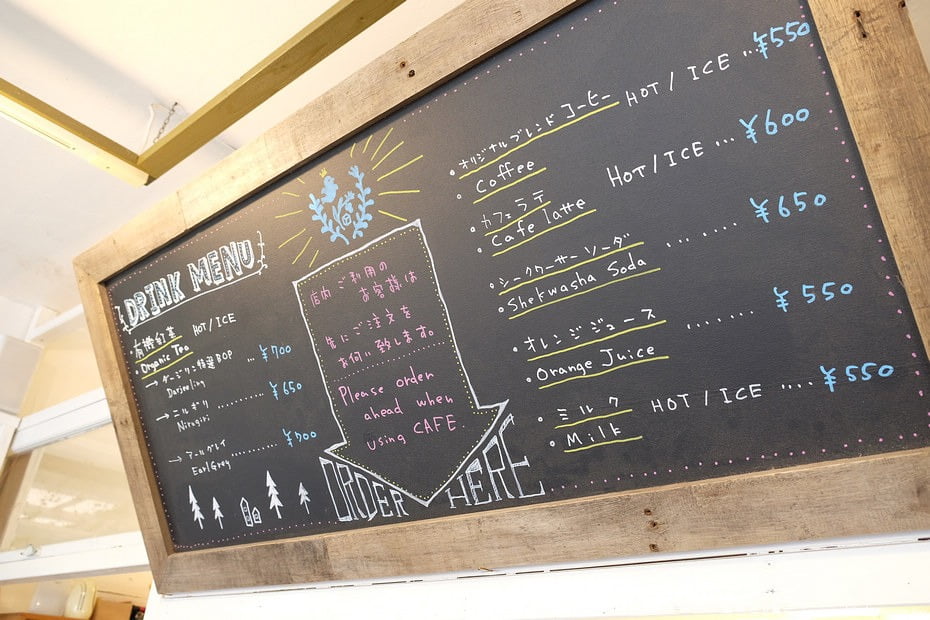 DRINK MENU
有機紅茶 HOT/ICE
Organic Tea
→ ダージリン特選BOP ... ¥700
Darjeeling
→ ニルギリ ........... ¥650
Nirugiri
→ アールグレイ ........ ¥700
Earl Grey
店内ご利用の
お客様は
先にご注文を
お伺い致します。
Please order
ahead when
using CAFE.
ORDER HERE
・オリジナルブレンドコーヒー HOT / ICE ...¥550
・Coffee
・カフェラテ HOT/ICE ...¥600
・Cafe latte
・シークワーサーソーダ ........ ¥650
・Shekwasha Soda
・オレンジジュース ....... ¥550
・Orange Juice
・ミルク HOT / ICE .... ¥550
・Milk